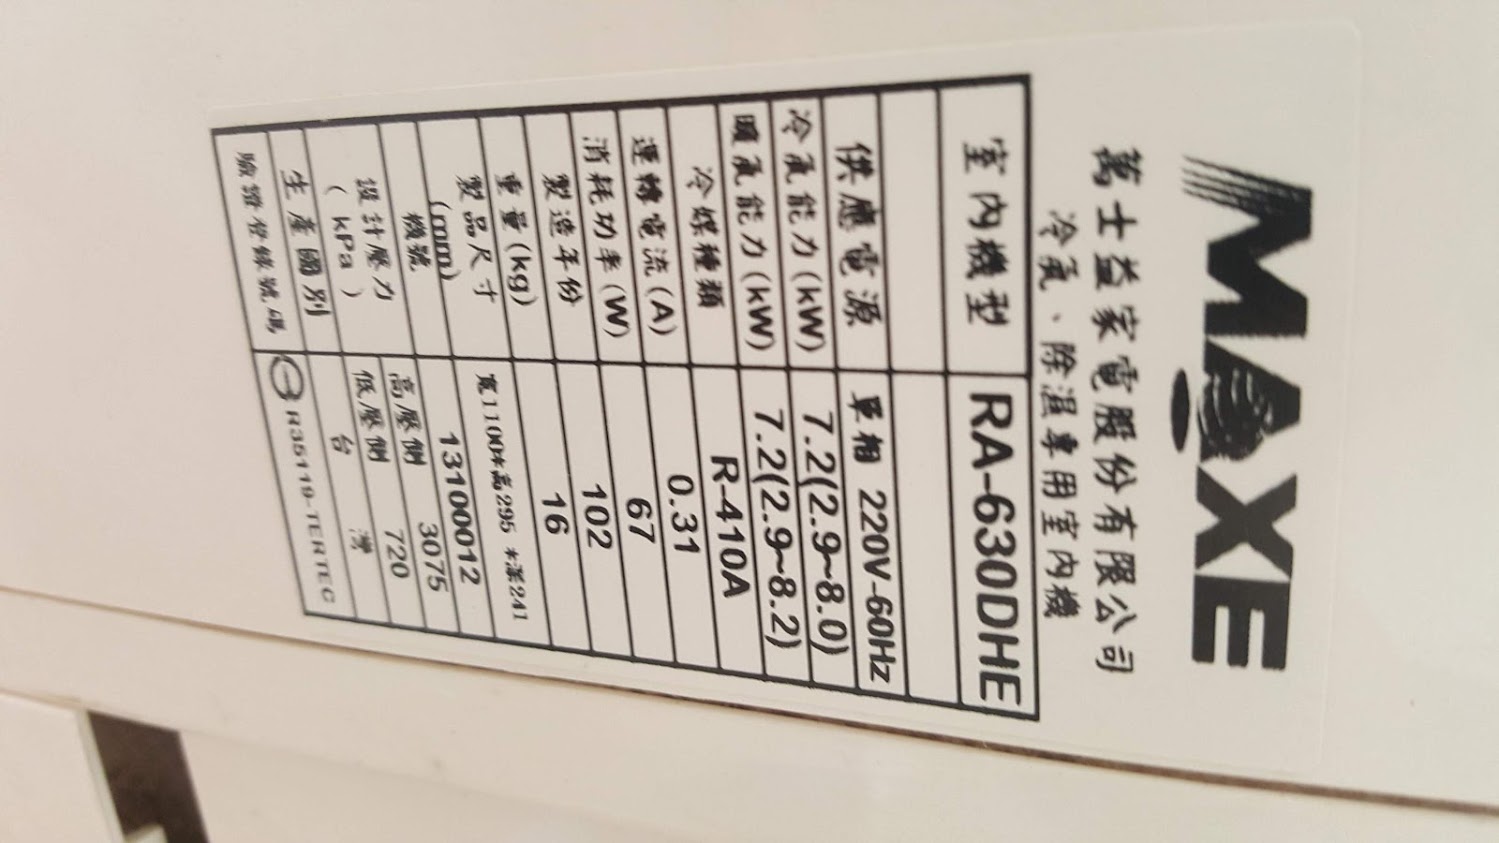 MAXE
萬士益家電股份有限公司
冷氣、除濕專用室內機
室內機型 RA-630DHE
供應電源 單相 220V-60Hz
冷氣能力(kW) 7.2(2.9~8.0)
暖氣能力(kW) 7.2(2.9~8.2)
冷媒種類 R-410A
運轉電流(A) 0.31
消耗功率(W) 67
製造年份 102
重量(kg) 16
製品尺寸 寬1100*高295*深241
(mm)
機號 13100012
設計壓力 高壓側 3075
(kPa) 低壓側 720
生產國別 台灣
驗證登錄號碼 R35119-TERTEC